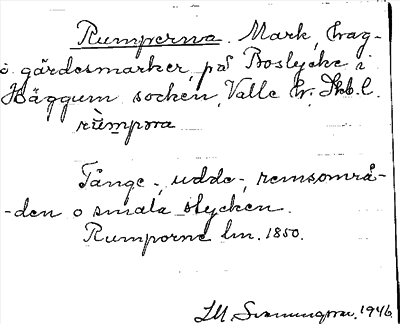 Rumperna. Mark, hag-
o. gärdesmarker, på Boslycke i
Häggum socken, Valle hr, Skb.l.
rùmpơra
Tånge-, udde-, remsområ-
-den o smala stycken.
Rumporne lm. 1850.
1946